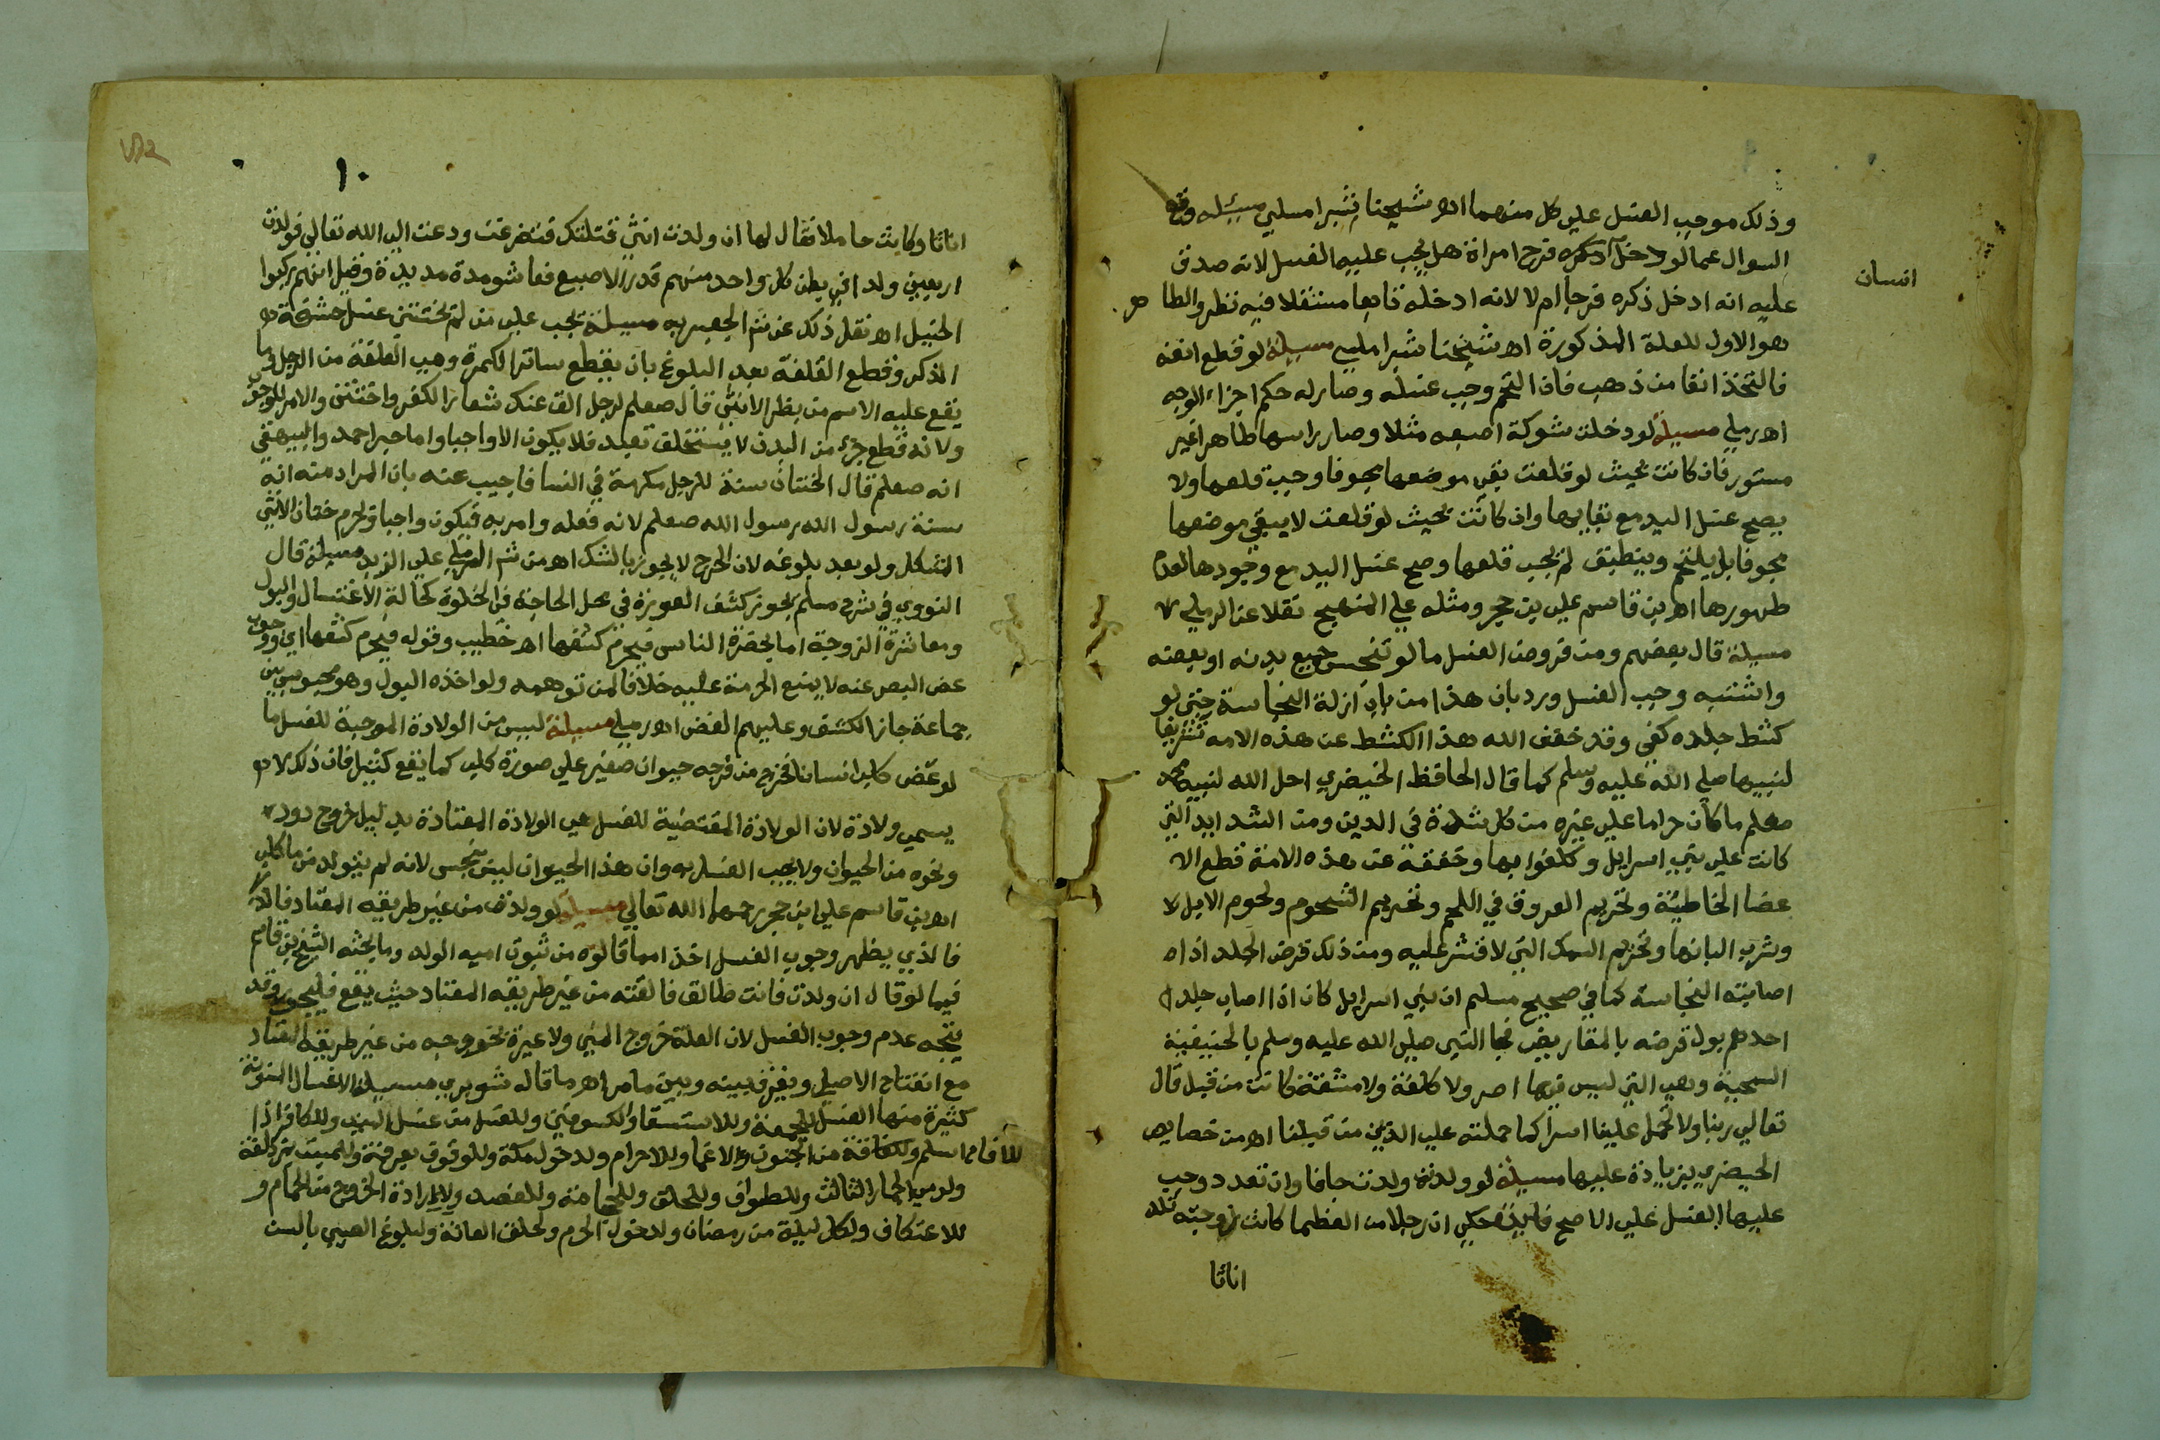 وذلك موجب الغسل على كل منهما اه شيخنا شبراملسي مسيله وقع
السوال عما لو دخل ذكره فرج امراة هل يجب عليه الغسل لانه صدق
انسان
عليه انه ادخل ذكره فرجا ام لا لانه ادخله تابعا مستقلا فيه نظر والظا هر
هو الاول للعلة المذكورة اه شيخنا شبراملسي مسيلة لو قطع انفه
فالتخذ انفا من ذهب فان التحم وجب غسله وصار له حكم اجزاء الوجه
اه رملي مسيلة لو دخلت شوكة اصبعه مثلا وصار راسها ظاهرا غير
مستور فان كانت بحيث لو قلعت بقي موضعها مجوفا وجب قلعها ولا
يصح غسل اليد مع بقايها وان كانت بحيث لو قلعت لا يبقي موضعها
مجوفا بل يلتحم وينطبق لم يجب قلعها وصح غسل اليد مع وجودها لعدم
ظهورها اه بن قاسم على بن حجر ومثله علي المنهج نقلا عن الرملي
مسيلة قال بعضهم ومن فروض الغسل ما لو تنجس جميع بدنه او بعضه
واشتبه وجب الغسل ورد بان هذا من باب ازلة النجاسة حتى لو
كشط جلده كفي وقد خفف الله هذا الكشط عن هذه الامه تشريفا
لنبيها صلي الله عليه وسلم كما قال الحافظ الخيضري احل الله لنبيه محمد
صعلم ما كان حراما على غيره من كل شدة في الدين ومن الشد ايد التي
كانت على بني اسرايل وكلفوا بها وخففه عن هذه الامة قطع الا
عضا الخاطئة وتحريم العروق في اللحم وتحريم الشحوم ولحوم الابل
وشرب البانها وتحريم السمك التي لا قشر عليه ومن ذلك قرض الجلد اذا
اصابته النجاسة كما في صحيح مسلم ان بني اسرايل كان اذا اصاب جلد
احدهم بول قرضه بالمقاريض فجا النبي صلي الله عليه وسلم بالحنيفية
السمحية وهي التي ليس فيها اصر ولا كلفة ولا مشقة كانت من قبل قال
تعالي ربنا ولا تحمل علينا اصرا كما حملته على الذين من قبلنا اه من خصايص
الخيضري بزيادة عليها مسيلة لو ولدت ولدت جافا وان تعدد وجب
عليها الغسل على الاصح حكي ان رجلا من العظما كانت زوجته تلد
اناثا
١٠
اناثا وكانت حاملا فقال لها ان ولدت انثي قتلتك فتضرعت ودعت الي الله تعالي فولدت
اربعين ولدا في بطن كل واحد منهم قدر الاصبع فعاشو مدة مديدة وقيل انهم ركبوا
الخيل اه نقل ذلك عن الجعبريه مسيلة يجب على من لم يختتن غسل حشفة
الذكر وقطع القلفة بعد البلوغ بان يقطع ساتر الكمرة وهي القلفة من الرجل وما
يقع عليه الاسم من بظر الانثي قال صعلم لرجل الق عنك شعار الكفر واختتن والامر للوجو
ولانه قطع جزء من البدن لا يستخلق تعبد فلا يكون الا واجبا واما خبر احمد والبيهقي
انه صعلم قال الختان سنة للرجل مكرمة في النسا فاجيب عنه بان المراد منه انه
سنة رسول الله رسول الله صعلم لانه فعله وامر به فيكون واجبا وحرم ختان الانثي
المشكل ولو بعد بلوغه لان الجرح لا يجوز بالشك اه من الرملي على الزبد مسيلة قال
النووي في شرح مسلم يجوز كشف العورة في محل الحاجة في الخلوة كحالة الاغتسال والبول
ومعاشرة الزوجة اما بحضرة الناس فيحرم كشفها اه خطيب وقوله فيحرم كشفها اي ووجوب
غض البصر عنه لا يمنع الحرمة عليه خلافا لمن توهمه ولو اخذه البول وهو محبوس بين
جماعة جاز الكشف وعليهم الغض اه رملي مسيلة ليس من الولادة الموجبة للغسل ما
لو عض كلب انسانا فخرج من فرجه حيوان صغير على صورة كلب كما يقع كثيرا فان ذلك لا
يسمي ولادة لان الولادة المقتضية للغسل هي الولادة المعتادة بدليل خروج دود
ونحوه من الحيوان ولا يجب الغسل به وان هذا الحيوان ليس بنجس لانه لم يتولد من ما كلب
اه بن قاسم على ابن حجر رحمهما الله تعالي مسيلة لو ولدت من غير طريقه المعتاد
فالذي يظهر وجوب الغسل اخذا مما قالوه من ثبوت امية الولد وما بحثه الشيخ بن قاسم
فيما لو قال ان ولدت فانت طالق فالقته من غير طريقه المعتاد حيث يقع وقد
يتجه عدم وجوب الغسل لان العلة خروج المني ولا عبرة بخروجه من غير طريقه المعتاد
مع انفتاح الاصلي ويفرق بينه وبين ما مر اه ما قاله شوبري مسيلة الاغسال المسنونة
كثيرة منها الغسل للجمعة وللاستسقا والكسوفين وللغسل من غسل الميت وللكافر اذا
اسلم وللافاقة من الجنون والاغما وللاحرام ولدخول مكة وللوقوف بعرفة وللمبيت بمزدلفة
ولرمي الجمار الثالث وللطواف وللحلق وللحجامة وللفصد ولارادة الخروج من الحمام و
للاعتكاف ولكل ليلة من رمضان ولدخول الحرم ولحلق العانة ولبلوغ الصبي بالسن